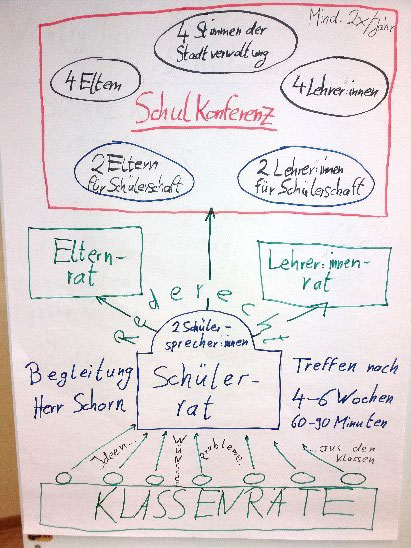 Mind. 2x/Jahr
4 Stimmen der
Stadtverwaltung
4 Eltern
4 Lehrer:innen
Schulkonferenz
2 Eltern
für Schülerschaft
2 Lehrer:innen
für Schülerschaft
Eltern-
rat
Lehrer:innen-
rat
Rederecht
2 Schüler-
sprecher:innen
Schüler-
rat
Begleitung
Herr Schorn
Treffen nach
4-6 Wochen
60-90 Minuten
Ideen...
Wünsche
Probleme...
...aus den
Klassen
KLASSENRÄTE